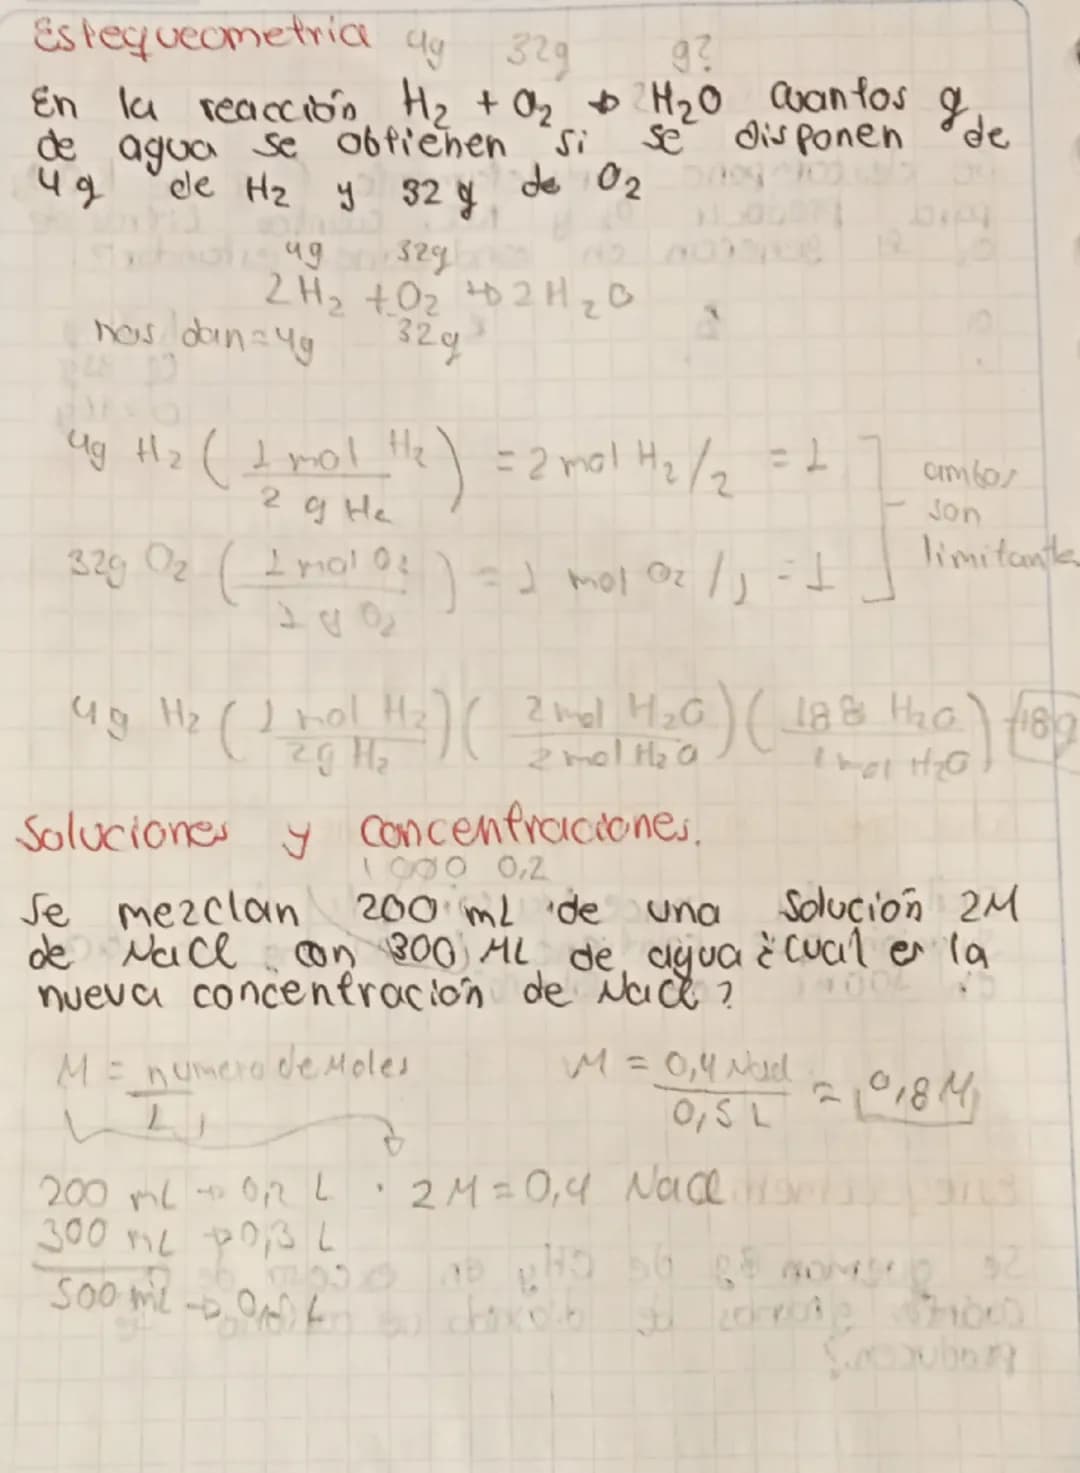 Estequeometria 4g 32g g?
En la reacción H₂ + O₂ → 2H₂O cuantos g
de agua se obtienen si se disponen de
4g de H₂ y 32 g de O₂
4g 32g
2H₂ + O₂ → 2H₂O
nos dan = 4g 32g
4g H₂ ( 1 mol H₂ / 2 g H₂ ) = 2 mol H₂/2 = 1
ambos son limitantes
32g O₂ ( 1 mol O₂ / 1 g O₂ ) = 1 mol O₂ /1 = 1
4g H₂ ( 1 mol H₂ / 2g H₂ ) ( 2 mol H₂O / 2 mol H₂O ) ( 188 H₂O / 1 mol H₂O ) 18g
Soluciones y concentraciones.
1000 0,2
Se mezclan 200 mL de una solución 2M
de NaCl con 300 ML de agua ¿cual es la
nueva concentración de NaCl?
M = numero de Moles / L
M = 0,4 NaCl / 0,5 L = 0,8 M
200 mL → 0,2 L · 2M = 0,4 NaCl
300 mL → 0,3 L
500 mL → L